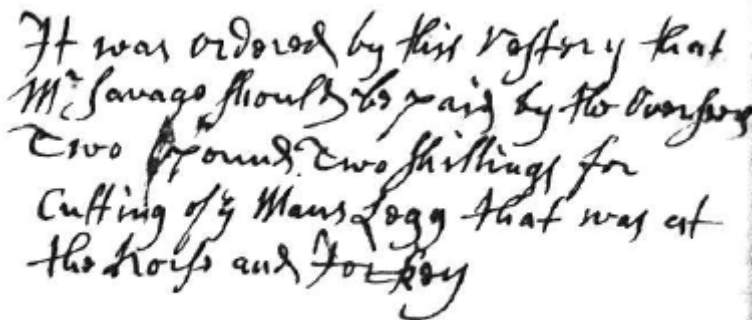 It was ordered by this vestery that
Mr Savage should be paid by the Overseers
Two pound Two shillings for
Cutting of ye Mans Legg that was at
the horse and